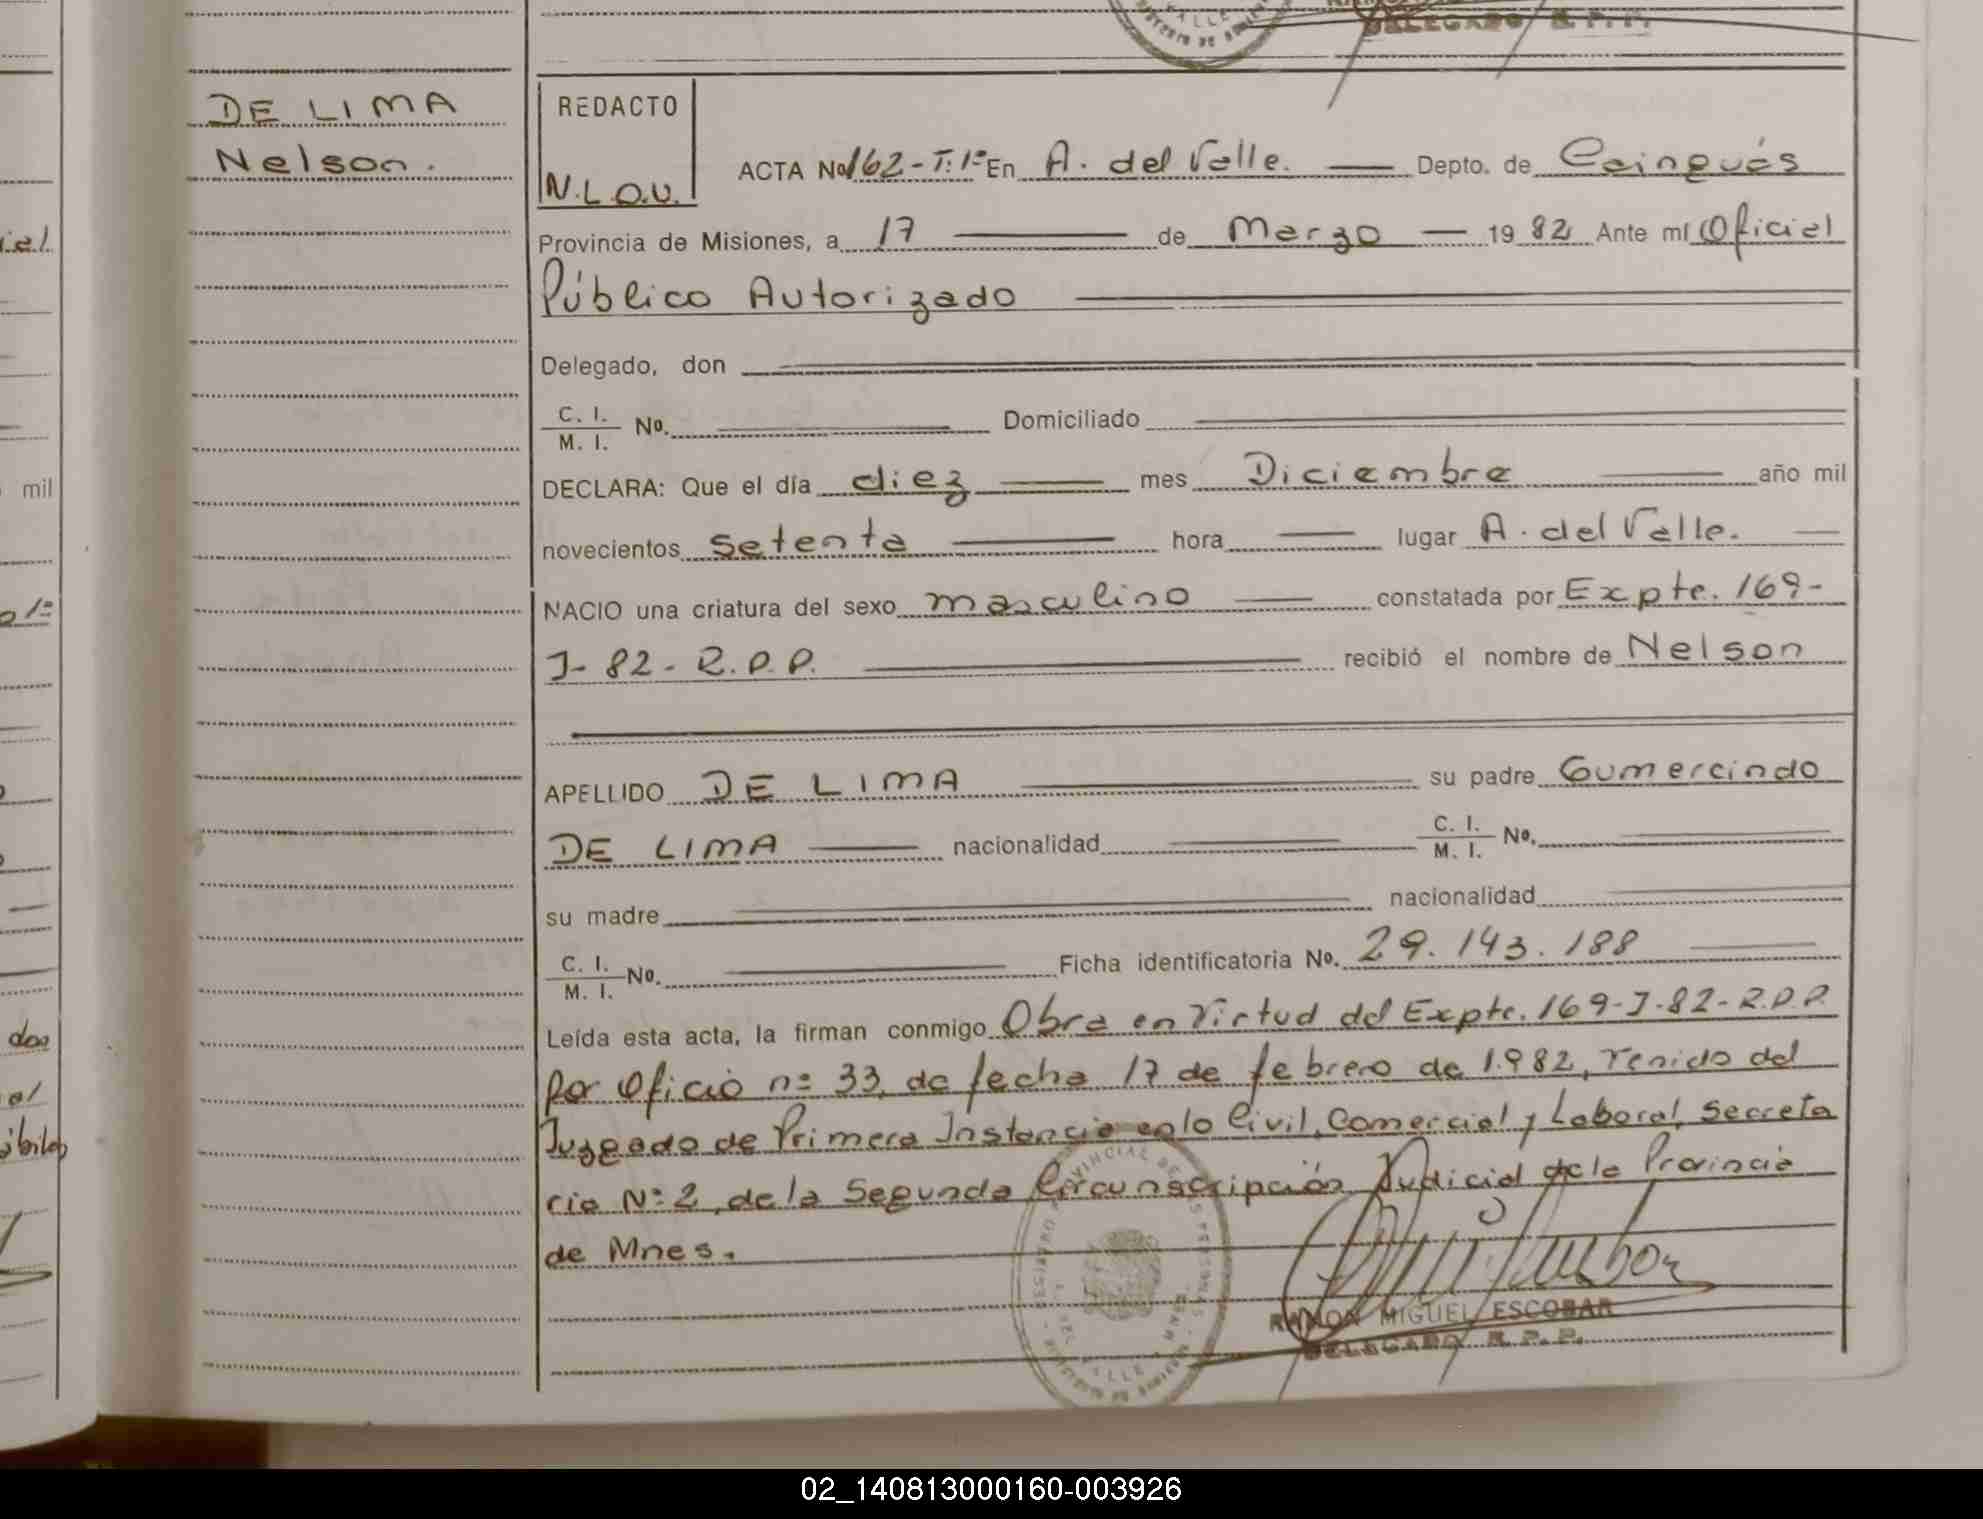 DELEGADO R. P. P.
DE LIMA
Nelson.
REDACTO
N.L.O.V.
ACTA No. 162-T:1º En A. del Valle. Depto. de Cainguás
Provincia de Misiones, a 17 de Marzo 19 82 Ante mí Oficial
Público Autorizado
Delegado, don
C. I.
M. I. No. Domiciliado
DECLARA: Que el día diez mes Diciembre año mil
novecientos setenta hora lugar A. del Valle.
NACIO una criatura del sexo masculino constatada por Expte. 169-
J-82-R.P.P. recibió el nombre de Nelson
APELLIDO DE LIMA su padre Gumercindo
DE LIMA nacionalidad C. I.
M. I. No.
su madre nacionalidad
C. I.
M. I. No. Ficha identificatoria No. 29.143.188
Leída esta acta, la firman conmigo Obra en virtud del Expte. 169-J-82-R.P.P.
por oficio nº 33, de fecha 17 de febrero de 1.982, venido del
Juzgado de Primera Instancia en lo Civil, Comercial y Laboral, Secreta
ria Nº 2, de la Segunda Circunscripción Judicial de la Provincia
de Mnes.
RAMON MIGUEL ESCOBAR
DELEGADO R. P. P.
mil
dos
02_140813000160-003926